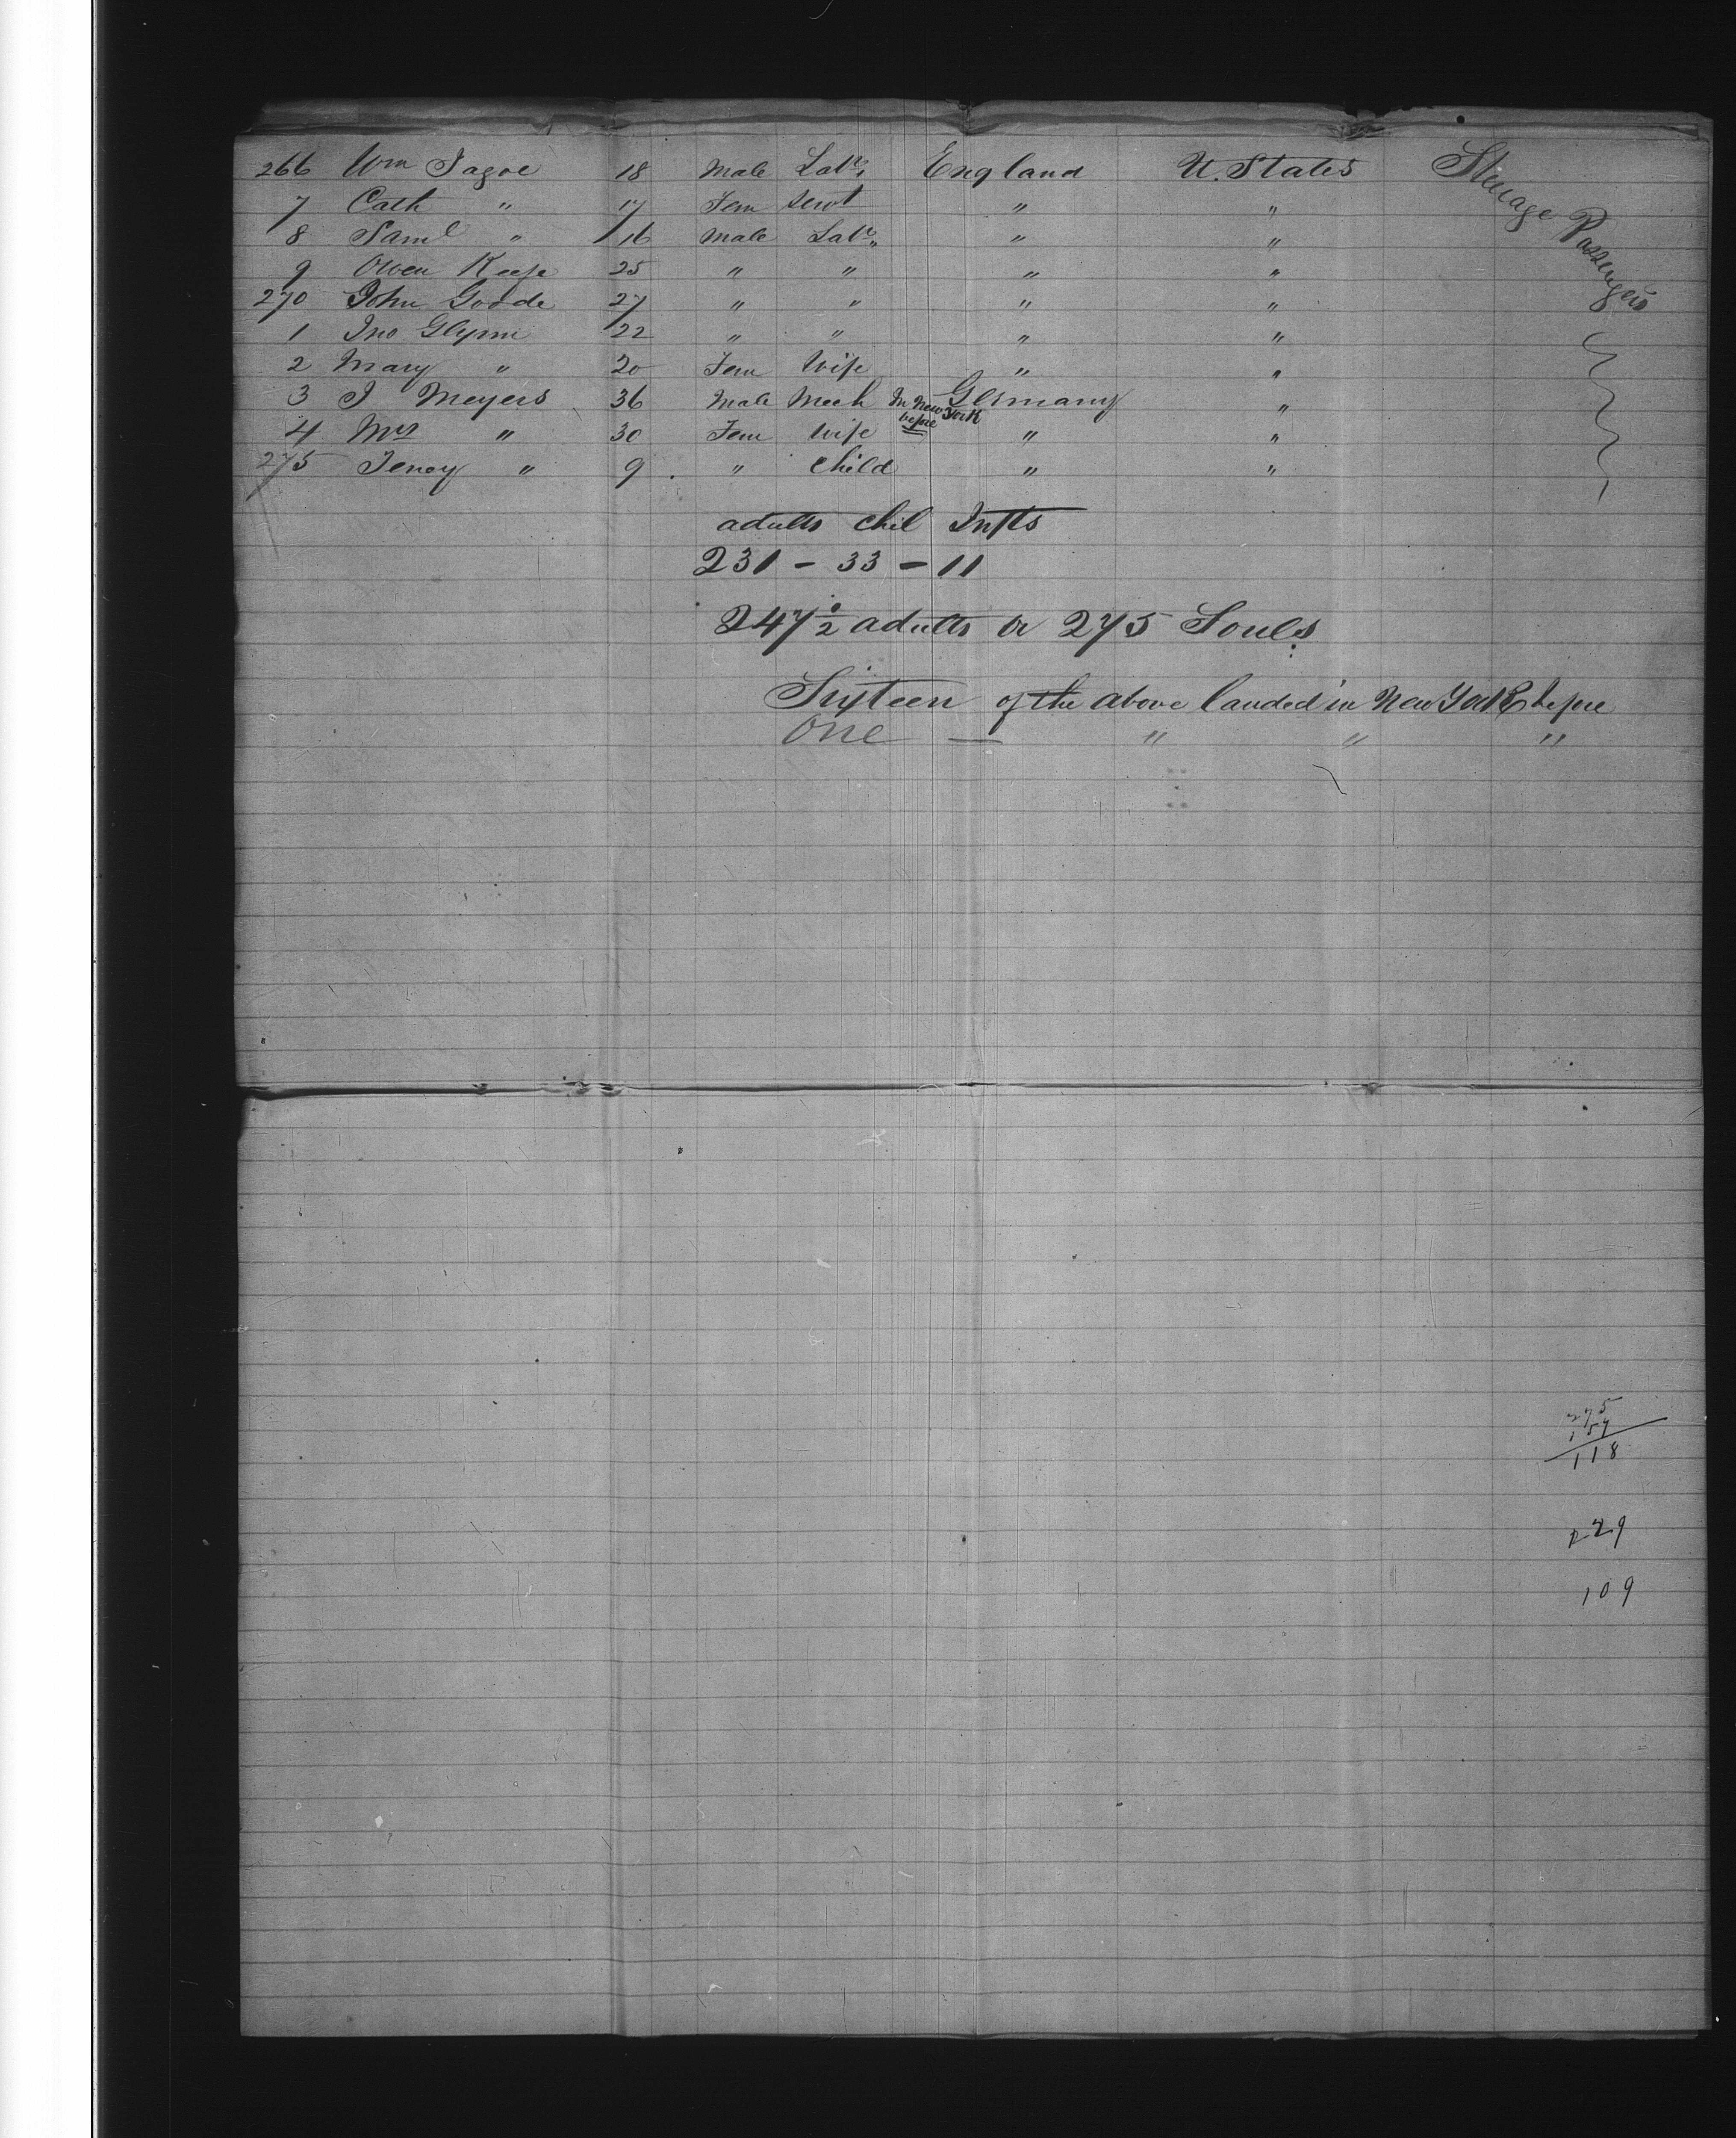 266 Wm Jagoe 18 Male Labr England U. States Steerage Passengers
7 Cath " 17 Fem Servt " "
8 Saml " 16 Male Labr " "
9 Owen Keefe 25 " " " "
270 John Goode 27 " " " "
1 Jno Glynn 22 " " " "
2 Mary " 20 Fem Wife " "
3 J Meyers 36 Male Mech In New York before Germany "
4 Mrs " 30 Fem Wife " "
275 Jenny " 9 " Child " "
adults chil Infts
231 - 33 - 11
247 1/2 adults or 275 Souls
Sixteen of the above landed in New York before
One — " " "
275
157
118
229
109